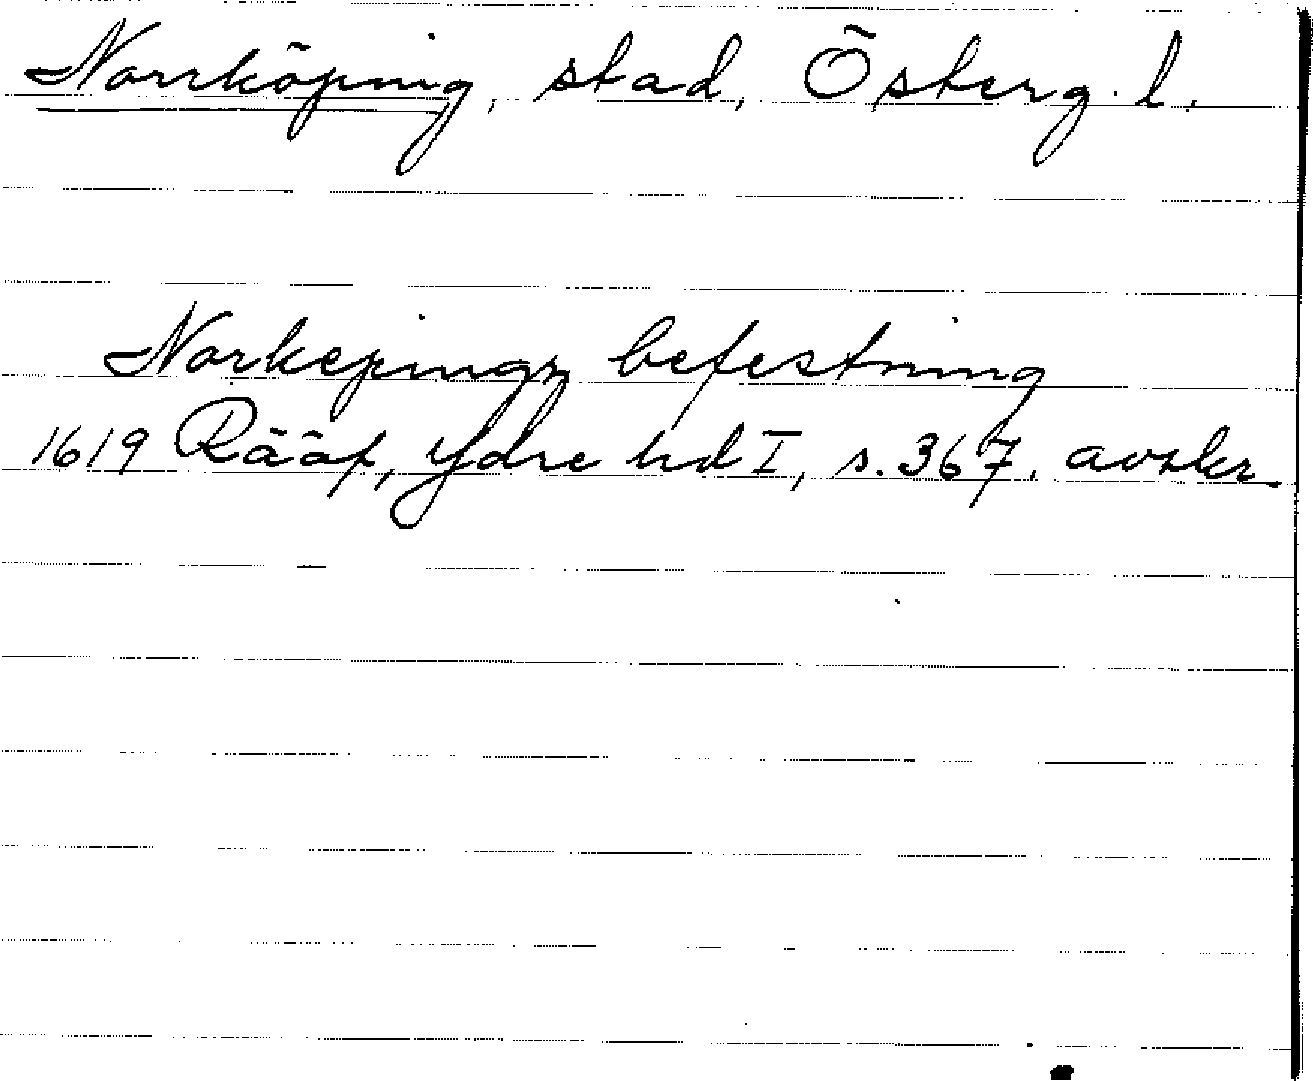 Norrköping, stad, Österg. l.
Norkepingz befestning
1619 Rääf, Ydre hd I, s. 367. avskr.